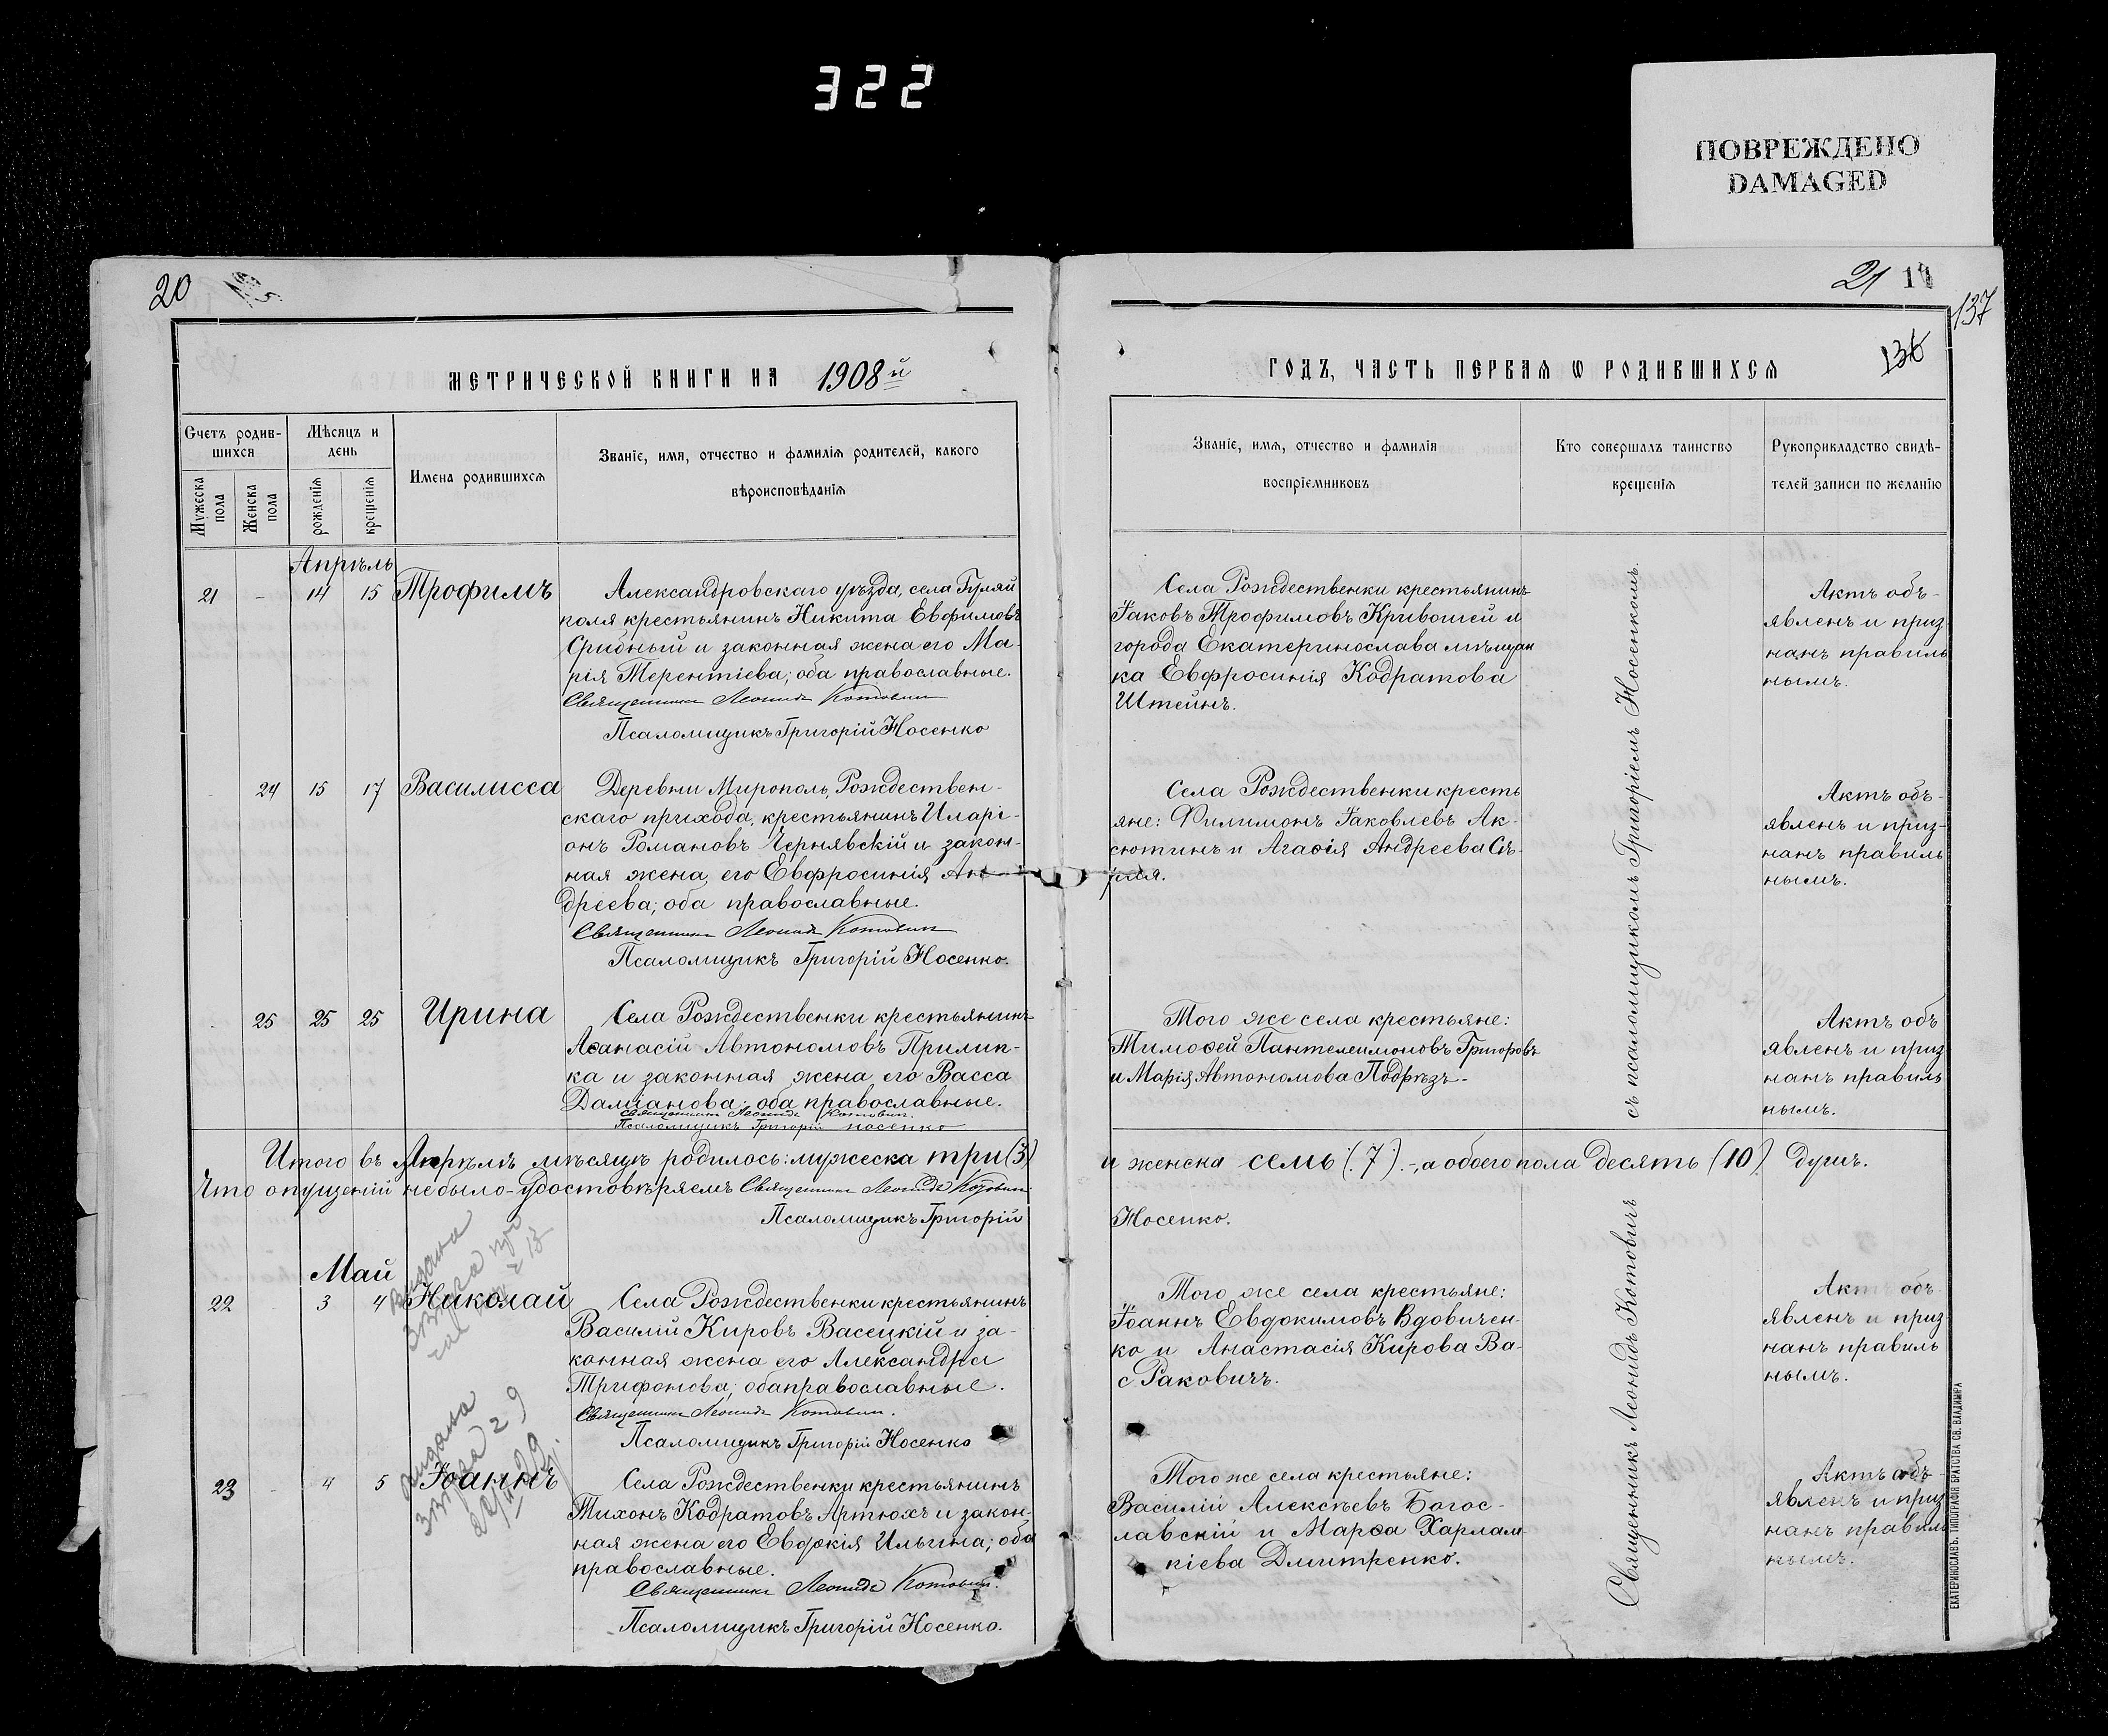 322
ПОВРЕЖДЕНО
DAMAGED
20
21
137
136
МЕТРИЧЕСКОЙ КНИГИ НА 1908й
ГОДЪ, ЧАСТЬ ПЕРВАЯ Ѡ РОДИВШИХСЯ
Счетъ родив-
шихся
Мужеска пола
Женска пола
Мѣсяцъ и
день
рожденія
крещенія
Имена родившихся
Званіе, имя, отчество и фамилія родителей, какого
вѣроисповѣданія
Званіе, имя, отчество и фамилія
воспріемниковъ
Кто совершалъ таинство
крещенія
Рукоприкладство свидѣ-
телей записи по желанію
Апрѣль
21 - 14 15 Трофимъ
Александровскаго уѣзда, села Гуляй
поля крестьянинъ Никита Евфимовъ
Срибный и законная жена его Ма-
рія Терентіева; оба православные.
Священникъ Леонидъ Котовичъ
Псаломщикъ Григорій Носенко
Села Рождественки крестьянинъ
Іаковъ Трофимовъ Кривошей и
города Екатеринослава мѣщан
ка Евфросинія Кодратова
Штейнъ.
Актъ объ-
явленъ и приз
нанъ правиль
нымъ.
24 15 17 Василисса
Деревни Мирополь, Рождествен-
скаго прихода, крестьянинъ Иларі-
онъ Романовъ Чернявскій и закон-
ная жена его Евфросинія Ан-
дреева; оба православные.
Священникъ Леонидъ Котовичъ
Псаломщикъ Григорій Носенко.
Села Рождественки кресть
яне: Филимонъ Іаковлевъ Ак-
сютинъ и Агаѳія Андреева Сѣ-
рая.
Актъ объ-
явленъ и приз-
нанъ правиль
нымъ.
25 25 25 Ирина
Села Рождественки крестьянинъ
Аѳанасій Автономовъ Прилип-
ка и законная жена его Васса
Даміанова; оба православные.
Священникъ Леонидъ Котовичъ.
Псаломщикъ Григорій Носенко
Того же села крестьяне:
Тимоѳей Пантелеимоновъ Григоровъ
и Марія Автономова Подрѣзъ-
Актъ объ
явленъ и приз
нанъ правиль
нымъ.
съ псаломщикомъ Григоріемъ Носенкомъ.
Итого въ Апрѣлѣ мѣсяцѣ родилось: мужеска три (3)
и женска семь (.7.)-, а обоего пола десять (10) душъ.
Что опущеній не было- удостовѣряемъ Священникъ Леонидъ Котовичъ
Псаломщикъ Григорій
Носенко.
Май
22 3 4 Николай
Села Рождественки крестьянинъ
Василій Кировъ Васецкій и за-
конная жена его Александра
Трифонова; оба православные.
Священникъ Леонидъ Котовичъ.
Псаломщикъ Григорій Носенко
Того же села крестьяне:
Іоаннъ Евдокимовъ Вдовичен-
ко и Анастасія Кирова Ва-
с Раковичъ.
Актъ объ
явленъ и приз
нанъ правиль
нымъ.
23 4 5 Іоаннъ
Села Рождественки крестьянинъ
Тихонъ Кодратовъ Артюхъ и закон-
ная жена его Евдокія Ильина; оба
православные.
Священникъ Леонидъ Котовичъ.
Псаломщикъ Григорій Носенко.
Того же села крестьяне:
Василій Алексѣевъ Богос-
лавскій и Марѳа Харлам-
піева Дмитренко.
Актъ объ-
явленъ и приз
нанъ правиль
нымъ.
Священникъ Леонидъ Котовичъ
ЕКАТЕРИНОСЛАВЪ. ТИПОГРАФІЯ БРАТСТВА СВ. ВЛАДИМІРА